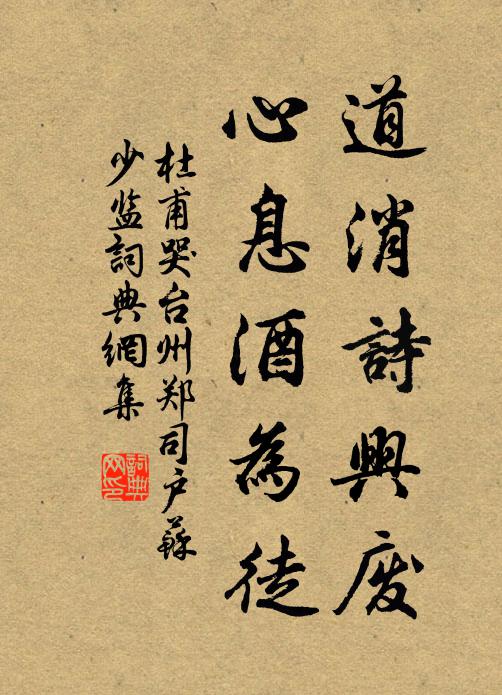 道消詩興廢
心息酒為徒
杜甫哭台州郑司户蘇
少监詞典網集
詞典
网印